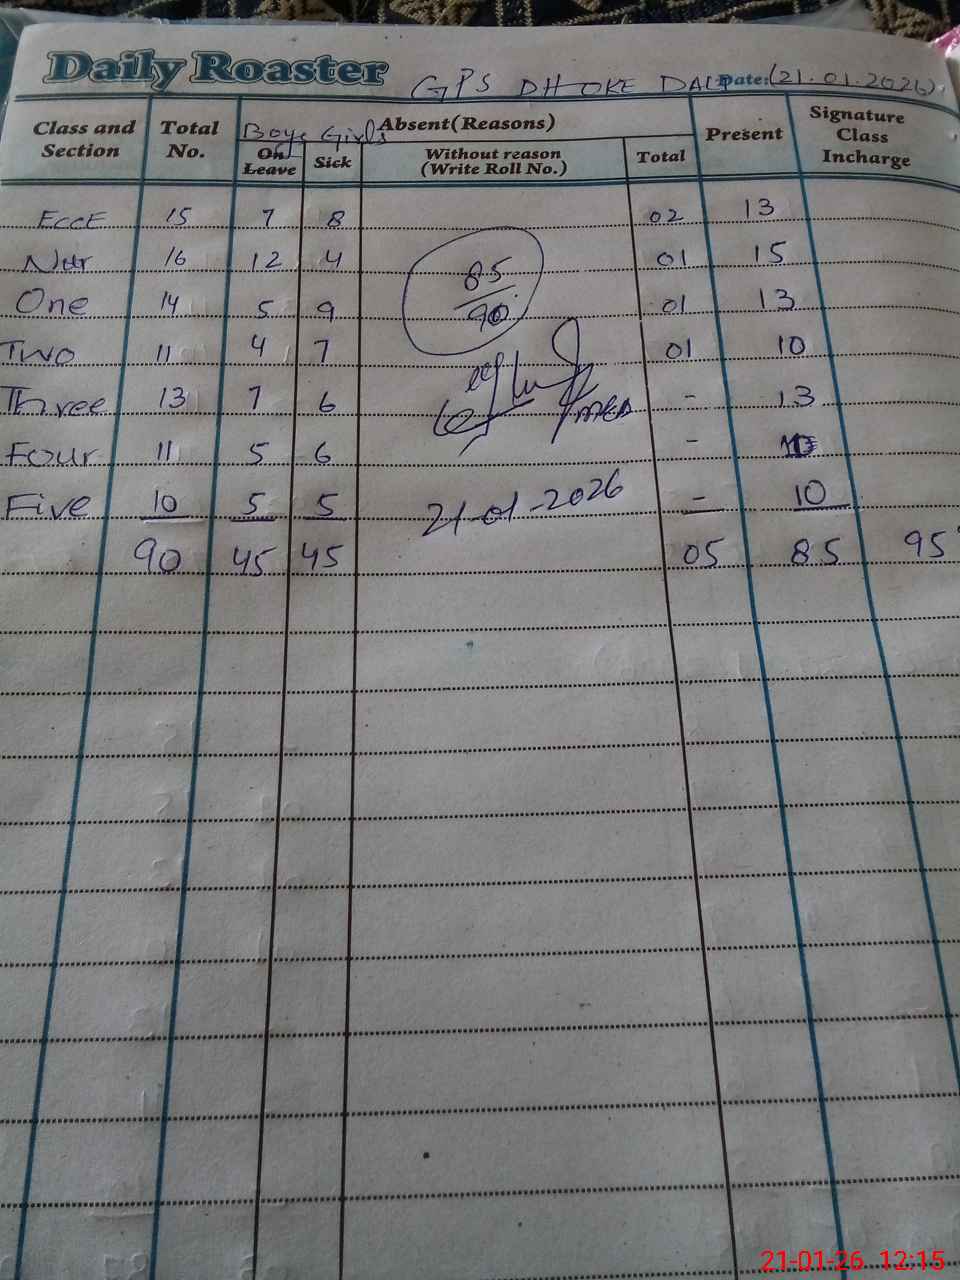 Daily Roaster GPS DHOKE DALL Date: (21.01.2026)
Class and Section Total No. Boys Girls Absent (Reasons) Present Signature Class Incharge
On Leave Sick Without reason (Write Roll No.) Total
ECCE 15 7 8 02 13
Nur 16 12 4 01 15
85
90
One 14 5 9 01 13
Two 11 4 7 01 10
Three 13 7 6 - 13
Four 11 5 6 -
Five 10 5 5 - 10
21-01-2026
90 45 45 05 85 95
21-01-26 12:15